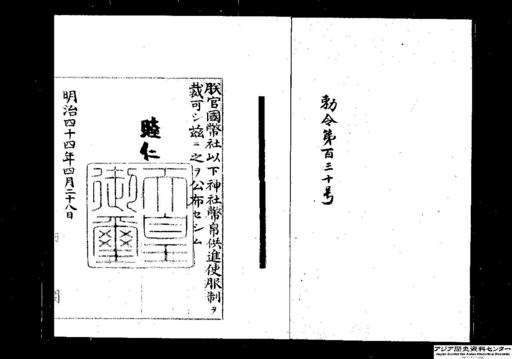 勅令第百三十号
朕官國幣社以下神社幣帛供進使服制ヲ
裁可シ茲ニ之ヲ公布セシム
睦仁
天皇御璽
明治四十四年四月二十八日
アジア歴史資料センター
Japan Center for Asian Historical Records